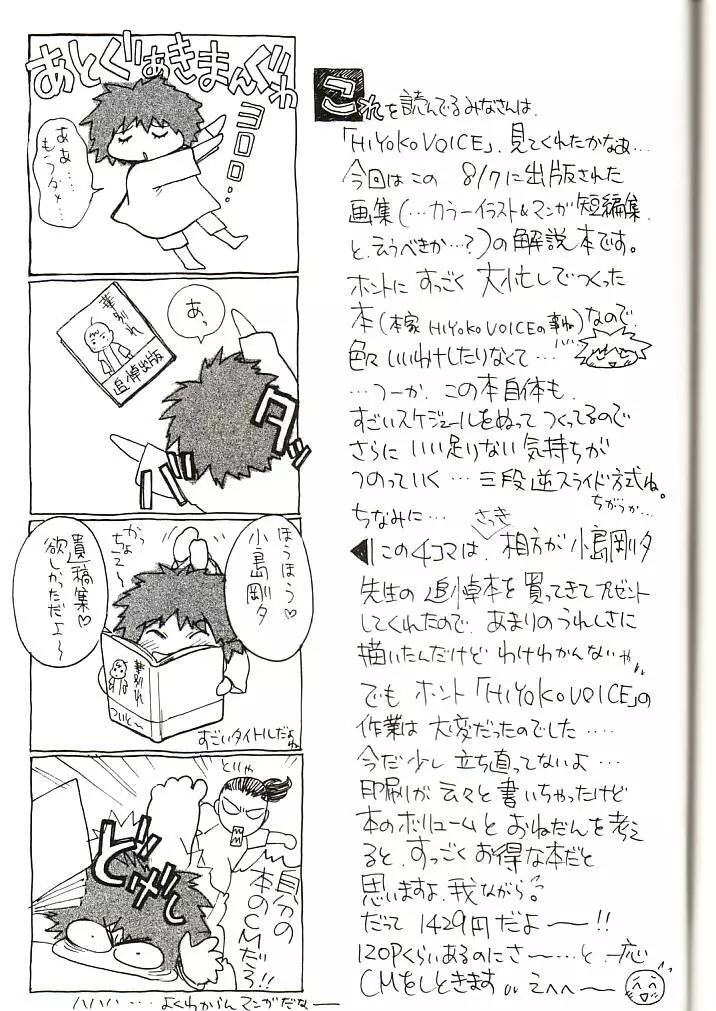 あとぐぁきまんぐゎ
ヨロロ…
ああ…
もうダメ…
あっ
華別れ
追悼出版
ガバッ
ほうほう♡
小島剛夕
かっちょえ〜
遺稿集♡
欲しかっただよ〜
華別れ
すごいタイトルだよね
どりゃ
どげし
自分の
本のCMだろ!!
ハハハ…よくわからんマンガだなー
これを読んでるみなさんは、
「HIYOKO VOICE」、見てくれたかなぁ…
今回はこの 8/7に出版された
画集(…カラーイラスト&マンガ短編集、
と、云うべきか…?)の解説本です。
ホントにすっごく大忙しでつくった
本(本家HIYOKO VOICEの事ね)なので、
色々いいわけしたりなくて…
…つーか、この本自体も、
すごいスケジュールをぬってつくってるので
さらにいい足りない気持ちが
つのっていく…三段逆スライド方式ね。
ちがうか…
ちなみに…
さっき
◀この4コマは、相方が小島剛夕
先生の追悼本を買ってきてプレゼント
してくれたので、あまりのうれしさに
描いたんだけどわけわかんないや
でもホント「HIYOKO VOICE」の
作業は大変だったのでした…
今だ少し立ち直ってないよ…
印刷が云々と書いちゃったけど
本のボリュームとおねだんを考え
ると、すっごくお得な本だと
思いますよ、我ながら。
だって1429円だよ——!!
120Pくらいあるのにさ〜…と、一応
CMをしときます えへへ〜